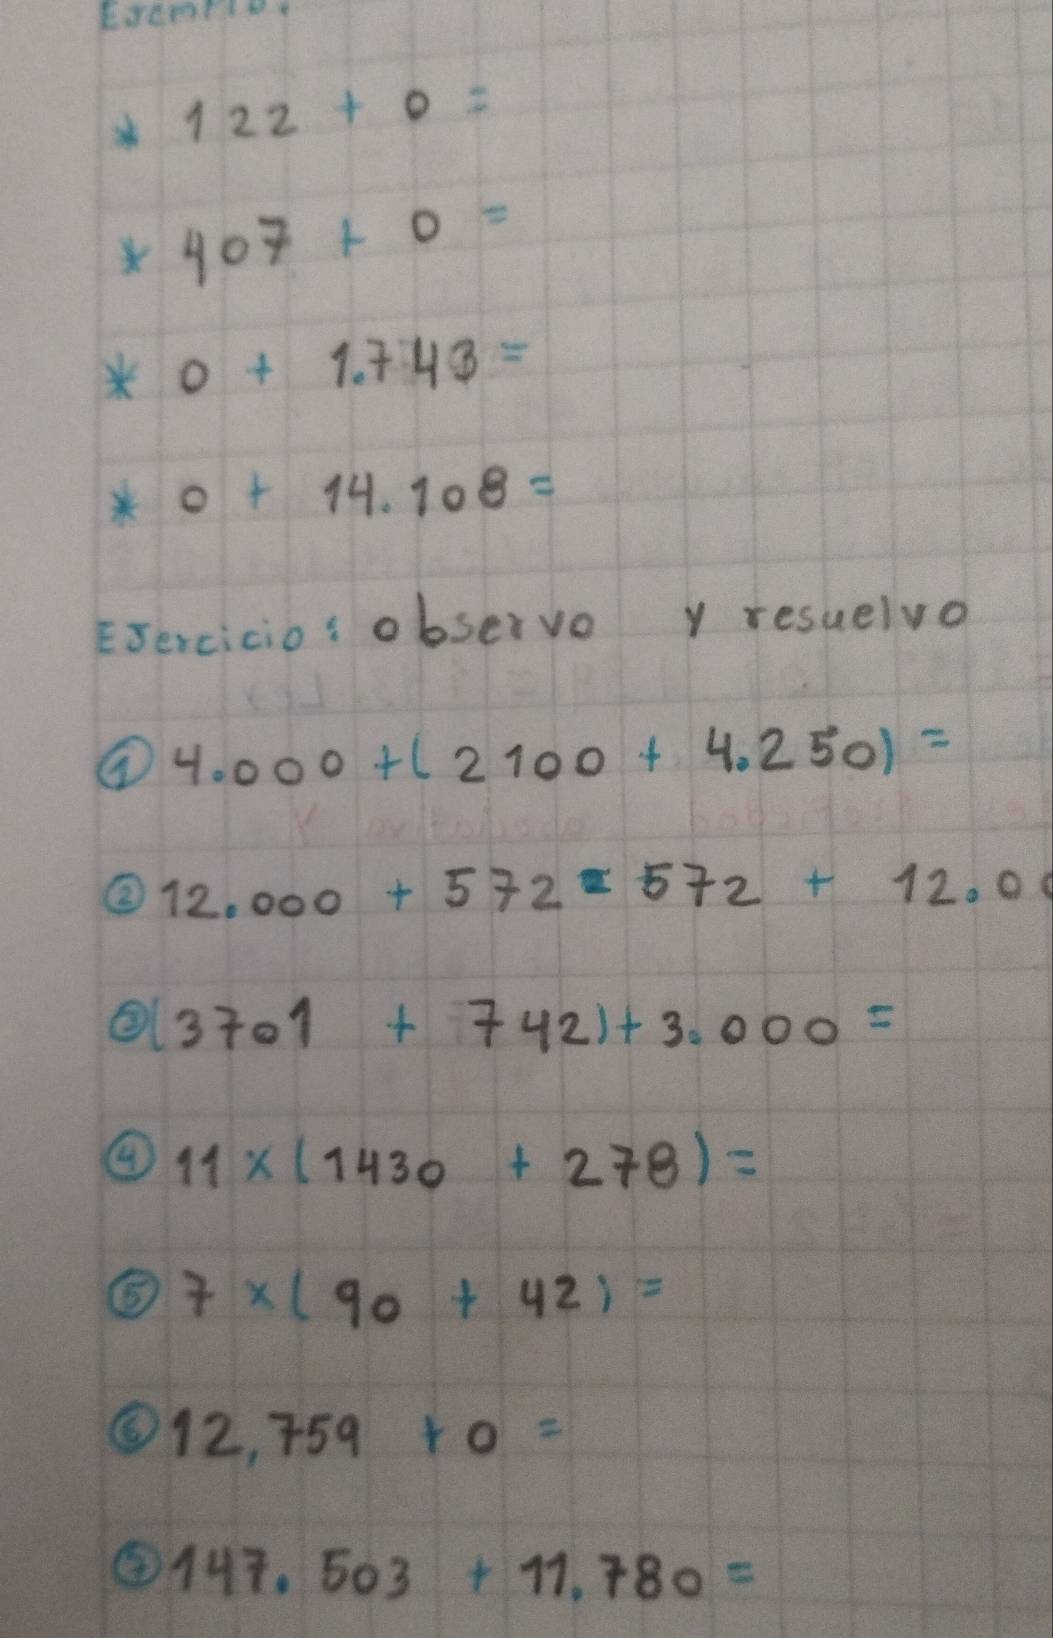 EJemplo:
* 122 + 0 =
* 407 + 0 =
* 0 + 1.743 =
* 0 + 14.108 =
EJercicio: observo y resuelvo
① 4.000 + ( 2100 + 4.250) =
② 12.000 + 572 = 572 + 12.00
③ (3701 + 742) + 3.000 =
④ 11 x (1430 + 278) =
⑤ 7 x ( 90 + 42) =
⑥ 12,759 + 0 =
⑦ 147.503 + 11.780 =